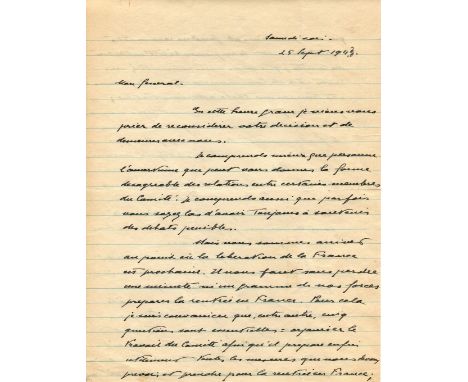 Samedi soir.
25 Sept 1943.
Mon Général.
En cette heure grave je viens vous
prier de reconsidérer votre décision et de
demeurer avec nous.
Je comprends mieux que personne
l'amertume que peut vous donner la forme
désagréable des relations entre certains membres
du Comité. Je comprends aussi que parfois
vous soyez las d'avoir toujours à soutenir
des débats pénibles.
Mais nous sommes arrivés
au point où la libération de la France
est prochaine. Il nous faut sans perdre
une minute ni un gramme de nos forces
préparer la rentrée en France. Pour cela
je suis convaincu que, entre autre, cinq
questions sont essentielles = organiser le
Travail du Comité afin qu'il prépare enfin
toutes les mesures que nous devons
prévoir et prendre pour la rentrée en France;